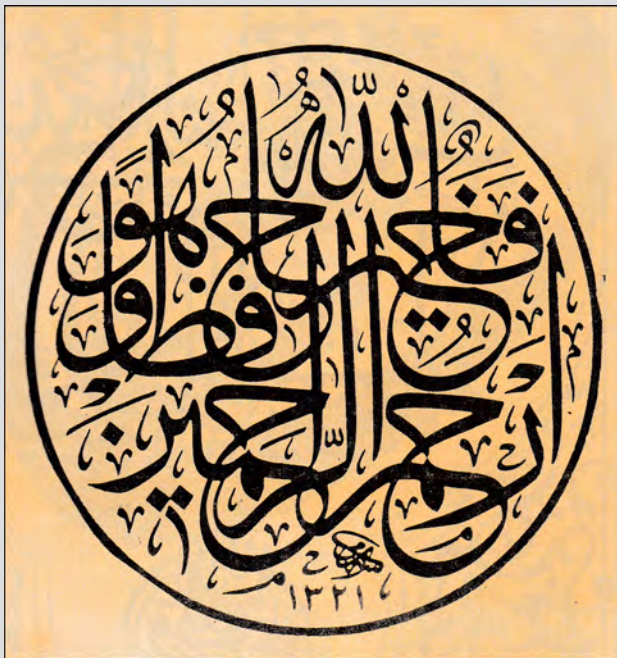 فالله خير حافظا وهو
ارحم الراحمين
١٣٢١